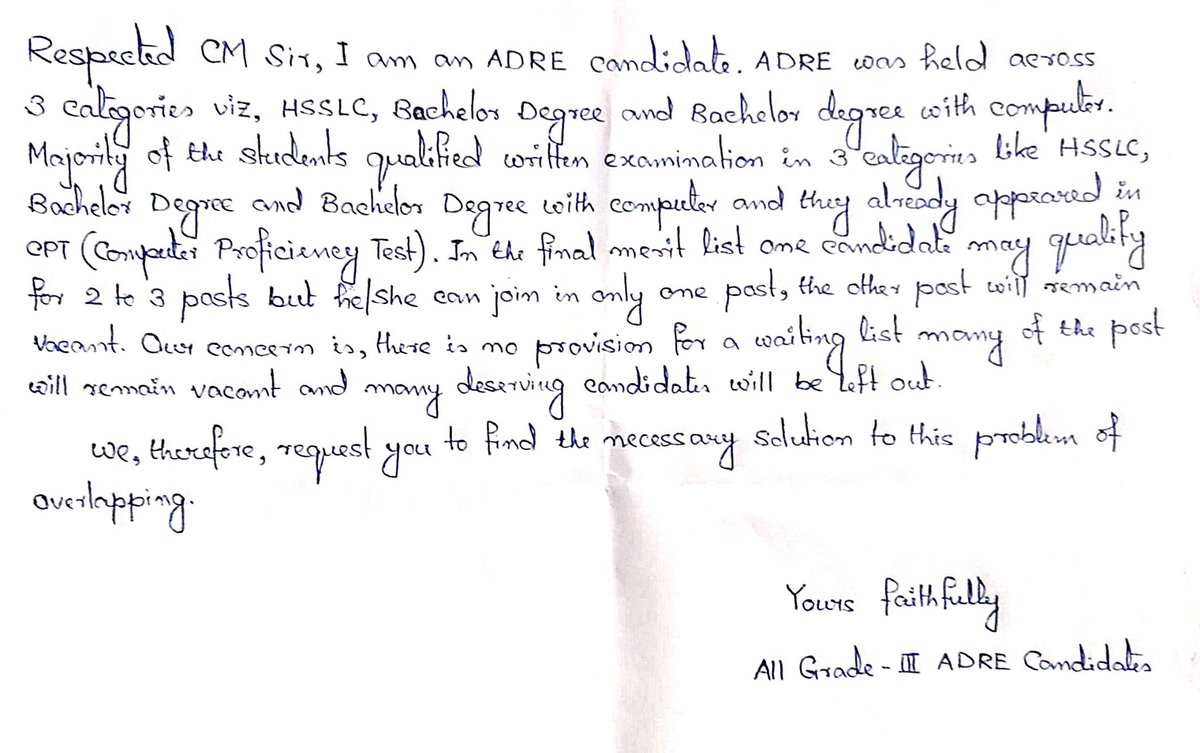 Respected CM Sir, I am an ADRE candidate. ADRE was held across
3 categories viz, HSSLC, Bachelor Degree and Bachelor degree with computer.
Majority of the students qualified written examination in 3 categories like HSSLC,
Bachelor Degree and Bachelor Degree with computer and they already appeared in
CPT (Computer Proficiency Test). In the final merit list one candidate may qualify
for 2 to 3 posts but he/she can join in only one post, the other post will remain
vacant. Our concern is, there is no provision for a waiting list many of the post
will remain vacant and many deserving candidates will be left out.
We, therefore, request you to find the necessary solution to this problem of
overlapping.
Yours faithfully
All Grade - III ADRE Candidates